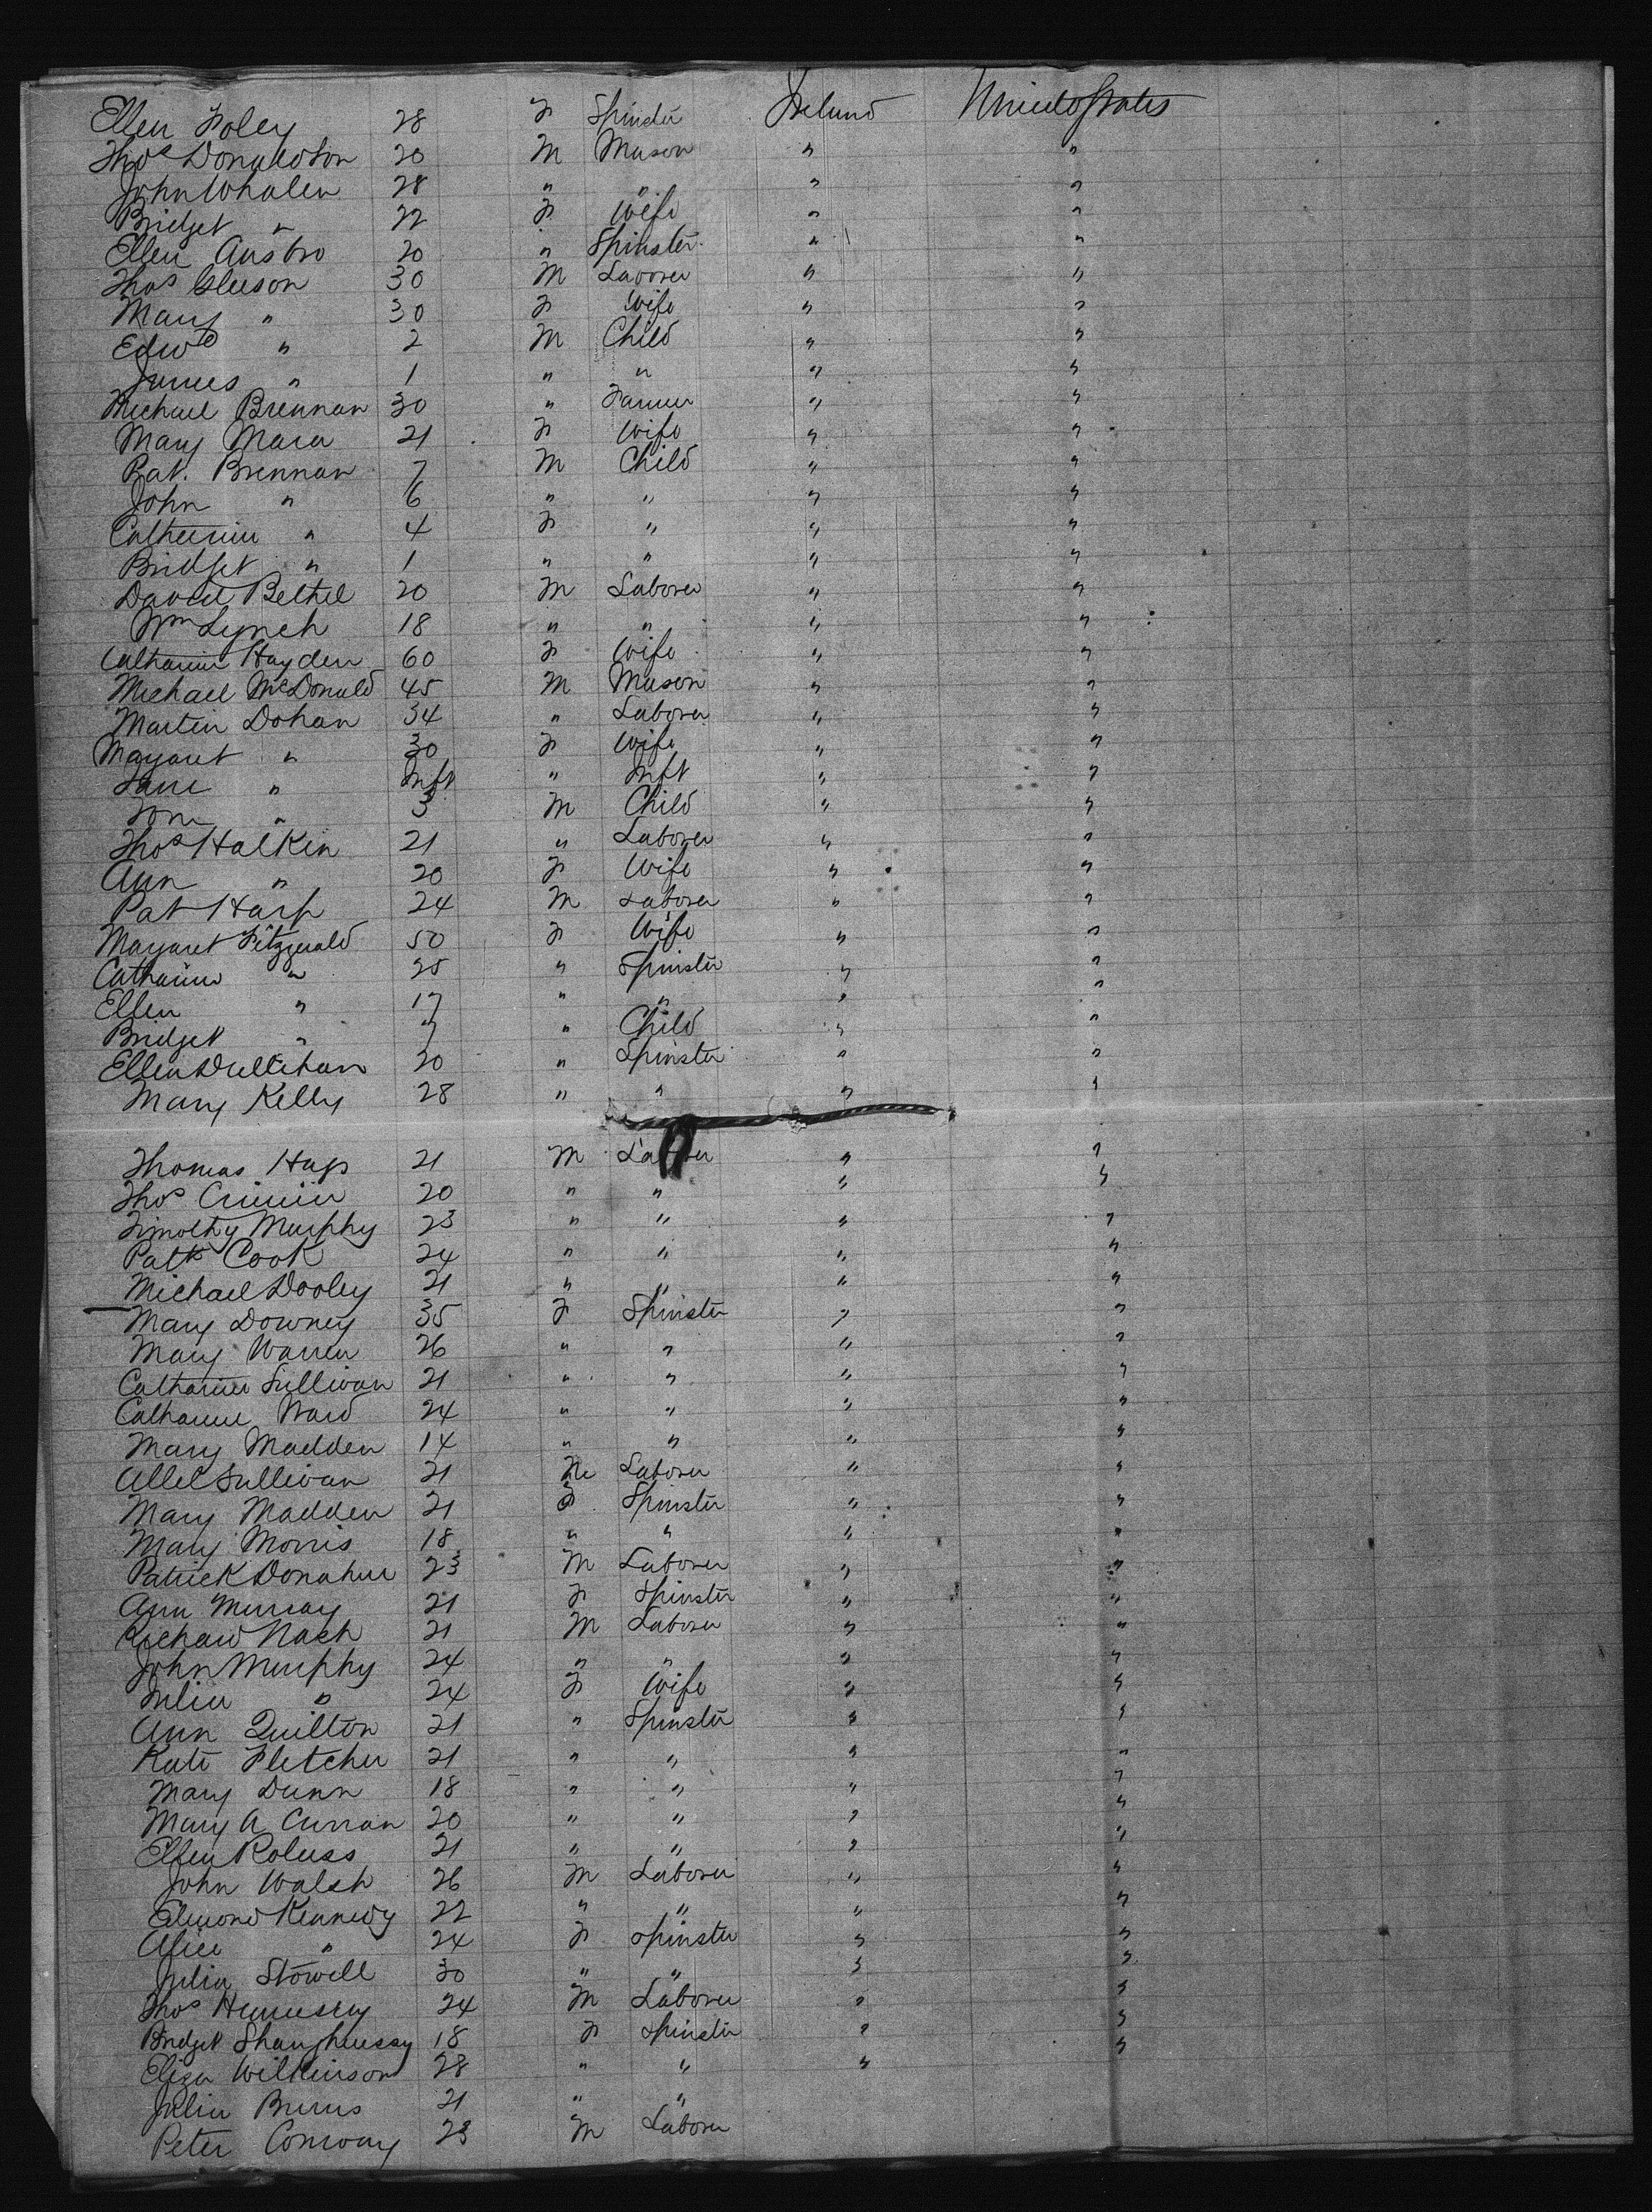 Ellen Foley 28 F Spinster Ireland United States
Thos Donaldson 20 M Mason " "
John Whalen 28 " " " "
Bridget " 22 F Wife " "
Ellen 20 " Spinster " "
Thos Gleeson 30 M Laborer " "
Mary " 30 F Wife " "
Edwd " 2 M Child " "
James " 1 " " " "
Michael Brennan 30 " Farmer " "
Mary Mara 21 F Wife " "
Pat. Brennan 7 M Child " "
John " 6 " " " "
Catherine " 4 F " " "
Bridget " 1 " " " "
David Bethel 20 M Laborer " "
Wm Lynch 18 " " " "
Catharine Hayden 60 F Wife " "
Michael McDonald 45 M Mason " "
Martin Dohan 34 " Laborer " "
Margaret " 30 F Wife " "
Jane " Inft " Inft " "
Tom " 3 M Child " "
Thos Halkin 21 " Laborer " "
Ann " 20 F Wife " "
Pat Harp 24 M Laborer " "
Margaret Fitzgerald 50 F Wife " "
Catharine " 25 " Spinster " "
Ellen " 17 " " " "
Bridget " 7 " Child " "
Ellen 20 " Spinster " "
Mary Kelly 28 " " " "
Thomas Hays 21 M Laborer " "
Thos 20 " " " "
Timothy Murphy 23 " " " "
Patk Cook 24 " " " "
Michael Dooley 21 " " " "
Mary Downey 35 F Spinster " "
Mary Warren 26 " " " "
Catharine Sullivan 21 " " " "
Catharine Ward 24 " " " "
Mary Madden 14 " " " "
Sullivan 21 M Laborer " "
Mary Madden 21 F Spinster " "
Mary Morris 18 " " " "
Patrick Donahue 23 M Laborer " "
Ann Murray 21 F Spinster " "
Richard Nash 21 M Laborer " "
John Murphy 24 " " " "
Julia " 24 F Wife " "
Ann Quilton 21 " Spinster " "
Kate Fletcher 21 " " " "
Mary Dunn 18 " " " "
Mary A Curran 20 " " " "
Ellen 21 " " " "
John Walsh 26 M Laborer " "
Edmond Kennedy 22 " " " "
Alice " 24 F Spinster " "
Julia Stowell 30 " " " "
Thos Hennessy 24 M Laborer " "
Bridget Shaughnessy 18 F Spinster " "
Eliza Wilkinson 28 " " "
Julia Burns 21 " "
Peter Conway 23 M Laborer